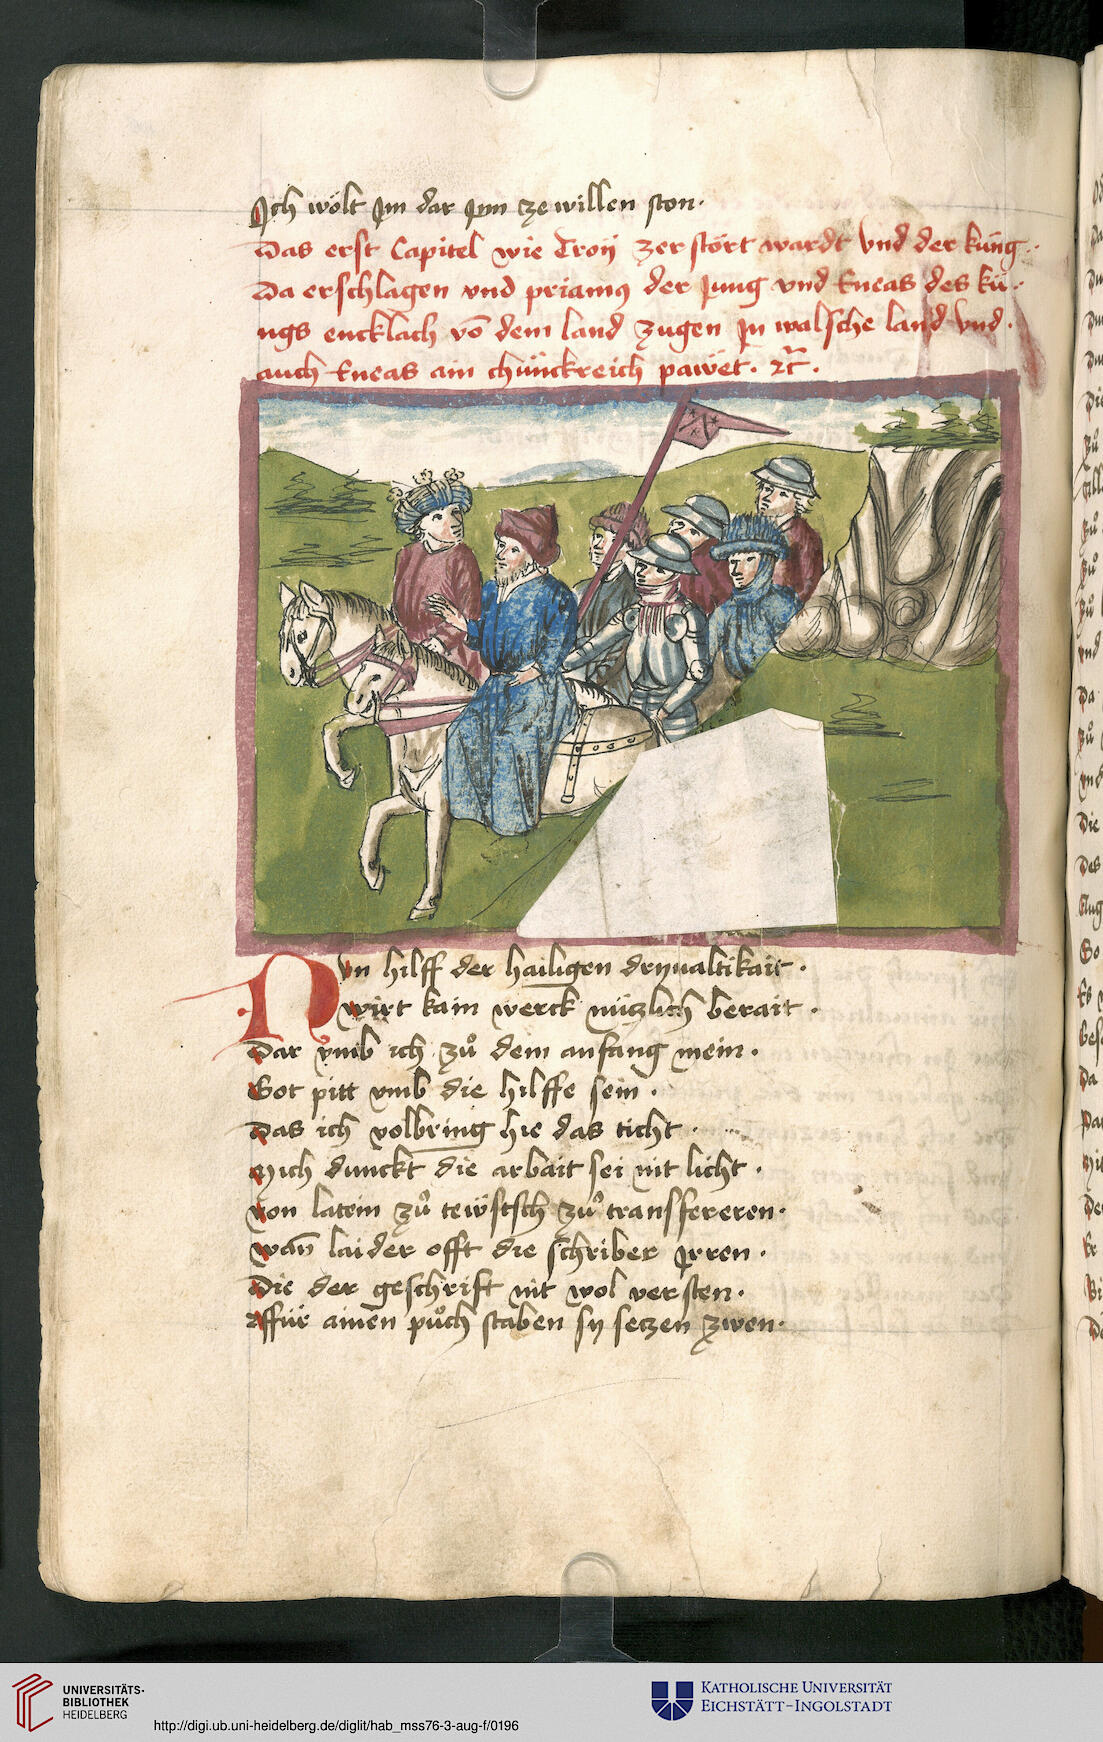 Ich wolt Im dar Inn ze willen ston·
Das erst Capitel wie Troÿ zerstört wardt vnd der küng·
Da erschlagen vnd priamꝰ der Jung vnd Eneas des kü·
ngs encklach võ dem land zugen In walsche land vnd·
auch Eneas ain chünckreich pawet· ꝛc̃·
Nvn hilff der hailigen drÿualtikait·
wirt kain werck nützlich berait·
Dar vmb ich zuͦ dem anfang mein·
Got pitt vmb die hilffe sein·
Das ich volbring hie das ticht·
Mich dunckt die arbait sei nit licht·
von latein zuͦ tewtsch zuͦ transfereren·
wañ laider offt die schriber Irren·
Die der geschrift nit wol versten·
Affür ainen puͦchstaben sÿ setzen zwen·
UNIVERSITÄTS-
BIBLIOTHEK
HEIDELBERG
http://digi.ub.uni-heidelberg.de/diglit/hab_mss76-3-aug-f/0196
KATHOLISCHE UNIVERSITÄT
EICHSTÄTT-INGOLSTADT